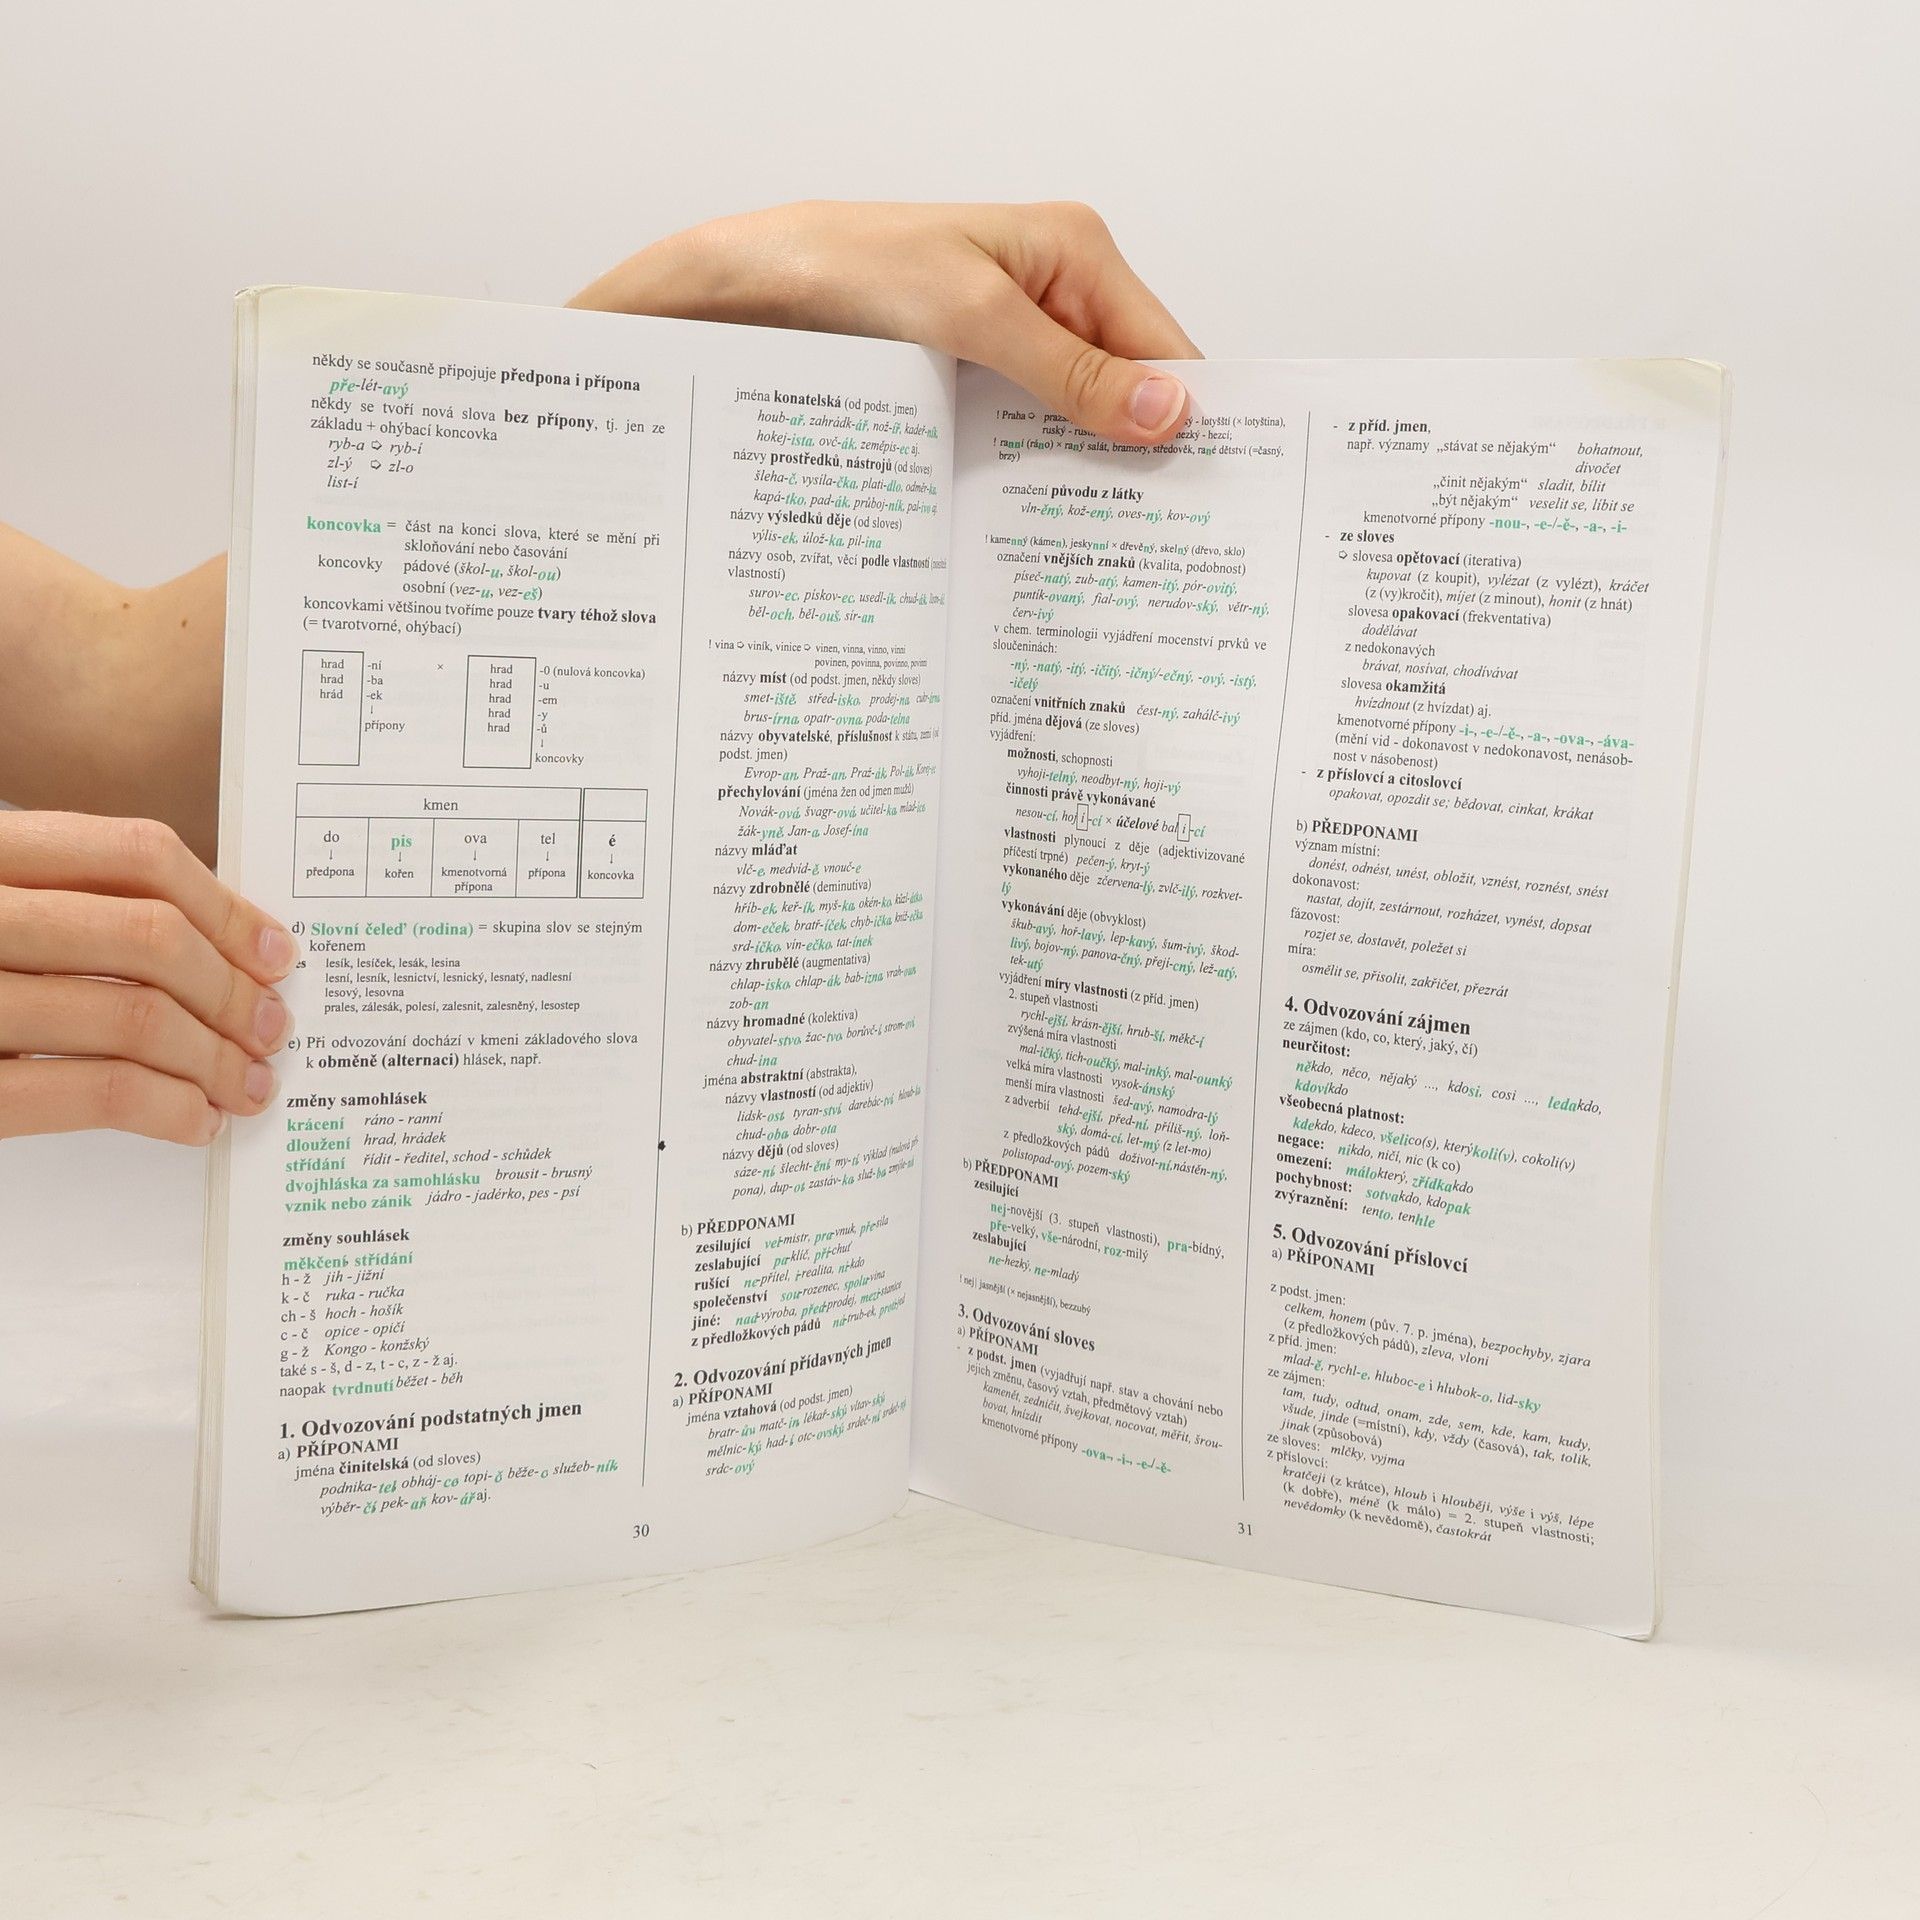 někdy se současně připojuje předpona i přípona
pře-lét-avý
někdy se tvoří nová slova bez přípony, tj. jen ze
základu + ohýbací koncovka
ryb-a ➪ ryb-í
zl-ý ➪ zl-o
list-í
koncovka = část na konci slova, které se mění při
skloňování nebo časování
koncovky pádové (škol-u, škol-ou)
osobní (vez-u, vez-eš)
koncovkami většinou tvoříme pouze tvary téhož slova
(= tvarotvorné, ohýbací)
hrad -ní × hrad -0 (nulová koncovka)
hrad -ba hrad -u
hrád -ek hrad -em
↓ hrad -y
přípony hrad -ů
↓
koncovky
kmen
do pis ova tel é
↓ ↓ ↓ ↓ ↓
předpona kořen kmenotvorná přípona koncovka
přípona
d) Slovní čeleď (rodina) = skupina slov se stejným
kořenem
lesík, lesíček, lesák, lesina
lesní, lesník, lesnictví, lesnický, lesnatý, nadlesní
lesový, lesovna
prales, zálesák, polesí, zalesnit, zalesněný, lesostep
e) Při odvozování dochází v kmeni základového slova
k obměně (alternaci) hlásek, např.
změny samohlásek
krácení ráno - ranní
dloužení hrad, hrádek
střídání řídit - ředitel, schod - schůdek
dvojhláska za samohlásku brousit - brusný
vznik nebo zánik jádro - jadérko, pes - psí
změny souhlásek
měkčení střídání
h - ž jih - jižní
k - č ruka - ručka
ch - š hoch - hošík
c - č opice - opičí
g - ž Kongo - konžský
také s - š, d - z, t - c, z - ž aj.
naopak tvrdnutí běžet - běh
1. Odvozování podstatných jmen
a) PŘÍPONAMI
jména činitelská (od sloves)
podnika-tel, obháj-ce, topi-č, běže-c, služeb-ník,
výběr-čí, pek-ař, kov-ář aj.
30
jména konatelská (od podst. jmen)
houb-ař, zahrádk-ář, nož-íř, kadeř-ník,
hokej-ista, ovč-ák, zeměpis-ec aj.
názvy prostředků, nástrojů (od sloves)
šleha-č, vysíla-čka, plati-dlo, odměr-ka,
kapá-tko, pad-ák, průboj-ník, pal-ivo aj.
názvy výsledků děje (od sloves)
výlis-ek, úlož-ka, pil-ina
názvy osob, zvířat, věcí podle vlastnosti
vlastností)
surov-ec, pískov-ec, usedl-ík, chud-ák,
běl-och, běl-ouš, sir-an
! vina ➪ viník, vinice ➪ vinen, vinna, vinno, vinni
povinen, povinna, povinno, povinni
názvy míst (od podst. jmen, někdy sloves)
smet-iště, střed-isko, prodej-na, cukr-árna,
brus-írna, opatr-ovna, poda-telna
názvy obyvatelské, příslušnost k státu, zemi (od
podst. jmen)
Evrop-an, Praž-an, Praž-ák, Pol-ák,
přechylování (jména žen od jmen mužů)
Novák-ová, švagr-ová, učitel-ka, mlad-ice
žák-yně, Jan-a, Josef-ína
názvy mláďat
vlč-e, medvíd-ě, vnouč-e
názvy zdrobnělé (deminutiva)
hříb-ek, keř-ík, myš-ka, okén-ko, kůzl-átko,
dom-eček, bratř-íček, chyb-ička, kniž-ečka,
srd-íčko, vín-ečko, tat-ínek
názvy zhrubělé (augmentativa)
chlap-isko, chlap-ák, bab-izna, vrah-oun,
zob-an
názvy hromadné (kolektiva)
obyvatel-stvo, žac-tvo, borůvč-í, strom-oví
chud-ina
jména abstraktní (abstrakta),
názvy vlastností (od adjektiv)
lidsk-ost, tyran-ství, darebác-tví, hloub-ka
chud-oba, dobr-ota
názvy dějů (od sloves)
sáze-ní, šlecht-ění, my-tí, výklad (nulová pří-
pona), dup-ot, zastáv-ka, služ-ba,
b) PŘEDPONAMI
zesilující vel-mistr, pra-vnuk, pře-síla
zeslabující pa-klíč, pří-chuť
rušící ne-přítel, i-realita, ni-kdo
společenství sou-rozenec, spolu-vina
jiné: nad-výroba, před-prodej, mezi-stanice
z předložkových pádů ná-trub-ek,
2. Odvozování přídavných jmen
a) PŘÍPONAMI
jména vztahová (od podst. jmen)
bratr-ův, matč-in, lékař-ský, vltav-ský
mělnic-ký, had-í, otc-ovský, srdeč-ní, srdeč-ný
srdc-ový
! Praha ➪ - lotyšští (× lotyština),
ruský - hezký - hezcí;
! ranní (ráno) × raný salát, brambory, středověk, rané dětství (=časný,
brzy)
označení původu z látky
vln-ěný, kož-ený, oves-ný, kov-ový
! kamenný (kámen), jeskynní × dřevěný, skelný (dřevo, sklo)
označení vnějších znaků (kvalita, podobnost)
píseč-natý, zub-atý, kamen-itý, pór-ovitý,
puntík-ovaný, fial-ový, nerudov-ský, větr-ný,
červ-ivý
v chem. terminologii vyjádření mocenství prvků ve
sloučeninách:
-ný, -natý, -itý, -ičitý, -ičný/-ečný, -ový, -istý,
-ičelý
označení vnitřních znaků čest-ný, zahálč-ivý
příd. jména dějová (ze sloves)
vyjádření:
možnosti, schopnosti
vyhoji-telný, neodbyt-ný, hoji-vý
činnosti právě vykonávané
nesou-cí, hoj i -cí × účelové bal i -cí
vlastnosti plynoucí z děje (adjektivizované
příčestí trpné) pečen-ý, kryt-ý
vykonaného děje zčervena-lý, zvlč-ilý, rozkvet-
lý
vykonávání děje (obvyklost)
škub-avý, hoř-lavý, lep-kavý, šum-ivý, škod-
livý, bojov-ný, panova-čný, přejí-cný, lež-atý,
tek-utý
vyjádření míry vlastnosti (z příd. jmen)
2. stupeň vlastnosti
rychl-ejší, krásn-ější, hrub-ší, měkč-í
zvýšená míra vlastnosti
mal-ičký, tich-oučký, mal-inký, mal-ounký
velká míra vlastnosti vysok-ánský
menší míra vlastnosti šed-avý, namodra-lý
z adverbií tehd-ejší, před-ní, příliš-ný, loň-
ský, domá-cí, let-mý (z let-mo)
z předložkových pádů doživot-ní, nástěn-ný,
polistopad-ový, pozem-ský
b) PŘEDPONAMI
zesilující
nej-novější (3. stupeň vlastnosti), pra-bídný,
pře-velký, vše-národní, roz-milý
zeslabující
ne-hezký, ne-mladý
! nej| jasnější (× nejasnější), bezzubý
3. Odvozování sloves
a) PŘÍPONAMI
- z podst. jmen (vyjadřují např. stav a chování nebo
jejich změnu, časový vztah, předmětový vztah)
kamenět, zedničit, švejkovat, nocovat, měřit, šrou-
bovat, hnízdit
kmenotvorné přípony -ova-, -i-, -e-/-ě-
31
- z příd. jmen,
např. významy „stávat se nějakým“ bohatnout,
divočet
„činit nějakým“ sladit, bílit
„být nějakým“ veselit se, líbit se
kmenotvorné přípony -nou-, -e-/-ě-, -a-, -i-
- ze sloves
➪ slovesa opětovací (iterativa)
kupovat (z koupit), vylézat (z vylézt), kráčet
(z (vy)kročit), míjet (z minout), honit (z hnát)
slovesa opakovací (frekventativa)
dodělávat
z nedokonavých
brávat, nosívat, chodívávat
slovesa okamžitá
hvízdnout (z hvízdat) aj.
kmenotvorné přípony -i-, -e-/-ě-, -a-, -ova-, -áva-
(mění vid - dokonavost v nedokonavost, nenásob-
nost v násobenost)
- z příslovcí a citoslovcí
opakovat, opozdit se; bědovat, cinkat, krákat
b) PŘEDPONAMI
význam místní:
donést, odnést, unést, obložit, vznést, roznést, snést
dokonavost:
nastat, dojít, zestárnout, rozházet, vynést, dopsat
fázovost:
rozjet se, dostavět, poležet si
míra:
osmělit se, přisolit, zakřičet, přezrát
4. Odvozování zájmen
ze zájmen (kdo, co, který, jaký, čí)
neurčitost:
někdo, něco, nějaký ..., kdosi, cosi ..., ledakdo,
kdovíkdo
všeobecná platnost:
kdekdo, kdeco, všelico(s), kterýkoli(v), cokoli(v)
negace: nikdo, ničí, nic (k co)
omezení: málokterý, zřídkakdo
pochybnost: sotvakdo, kdopak
zvýraznění: tento, tenhle
5. Odvozování příslovcí
a) PŘÍPONAMI
z podst. jmen:
celkem, honem (pův. 7. p. jména), bezpochyby, zjara
(z předložkových pádů), zleva, vloni
z příd. jmen:
mlad-ě, rychl-e, hluboc-e i hlubok-o, lid-sky
ze zájmen:
tam, tudy, odtud, onam, zde, sem, kde, kam, kudy,
všude, jinde (=místní), kdy, vždy (časová), tak, tolik,
jinak (způsobová)
ze sloves: mlčky, vyjma
z příslovcí:
kratčeji (z krátce), hloub i hlouběji, výše i výš, lépe
(k dobře), méně (k málo) = 2. stupeň vlastnosti;
nevědomky (k nevědomě), častokrát